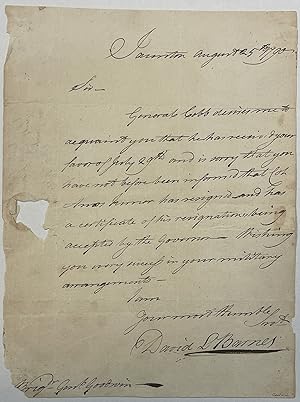 Taunton August 25th 1792
Sir—
General Cobb desires me to
acquaint you that he has receiv'd your
favor of July 29th and is sorry that you
have not before been inform'd that
has resigned and has
a certificate of his resignations being
accepted by the Governor— Wishing
you every success in your military
arrangements—
I am
Your most Humble
Servt
David L Barnes
Brigr Genl Godwin—